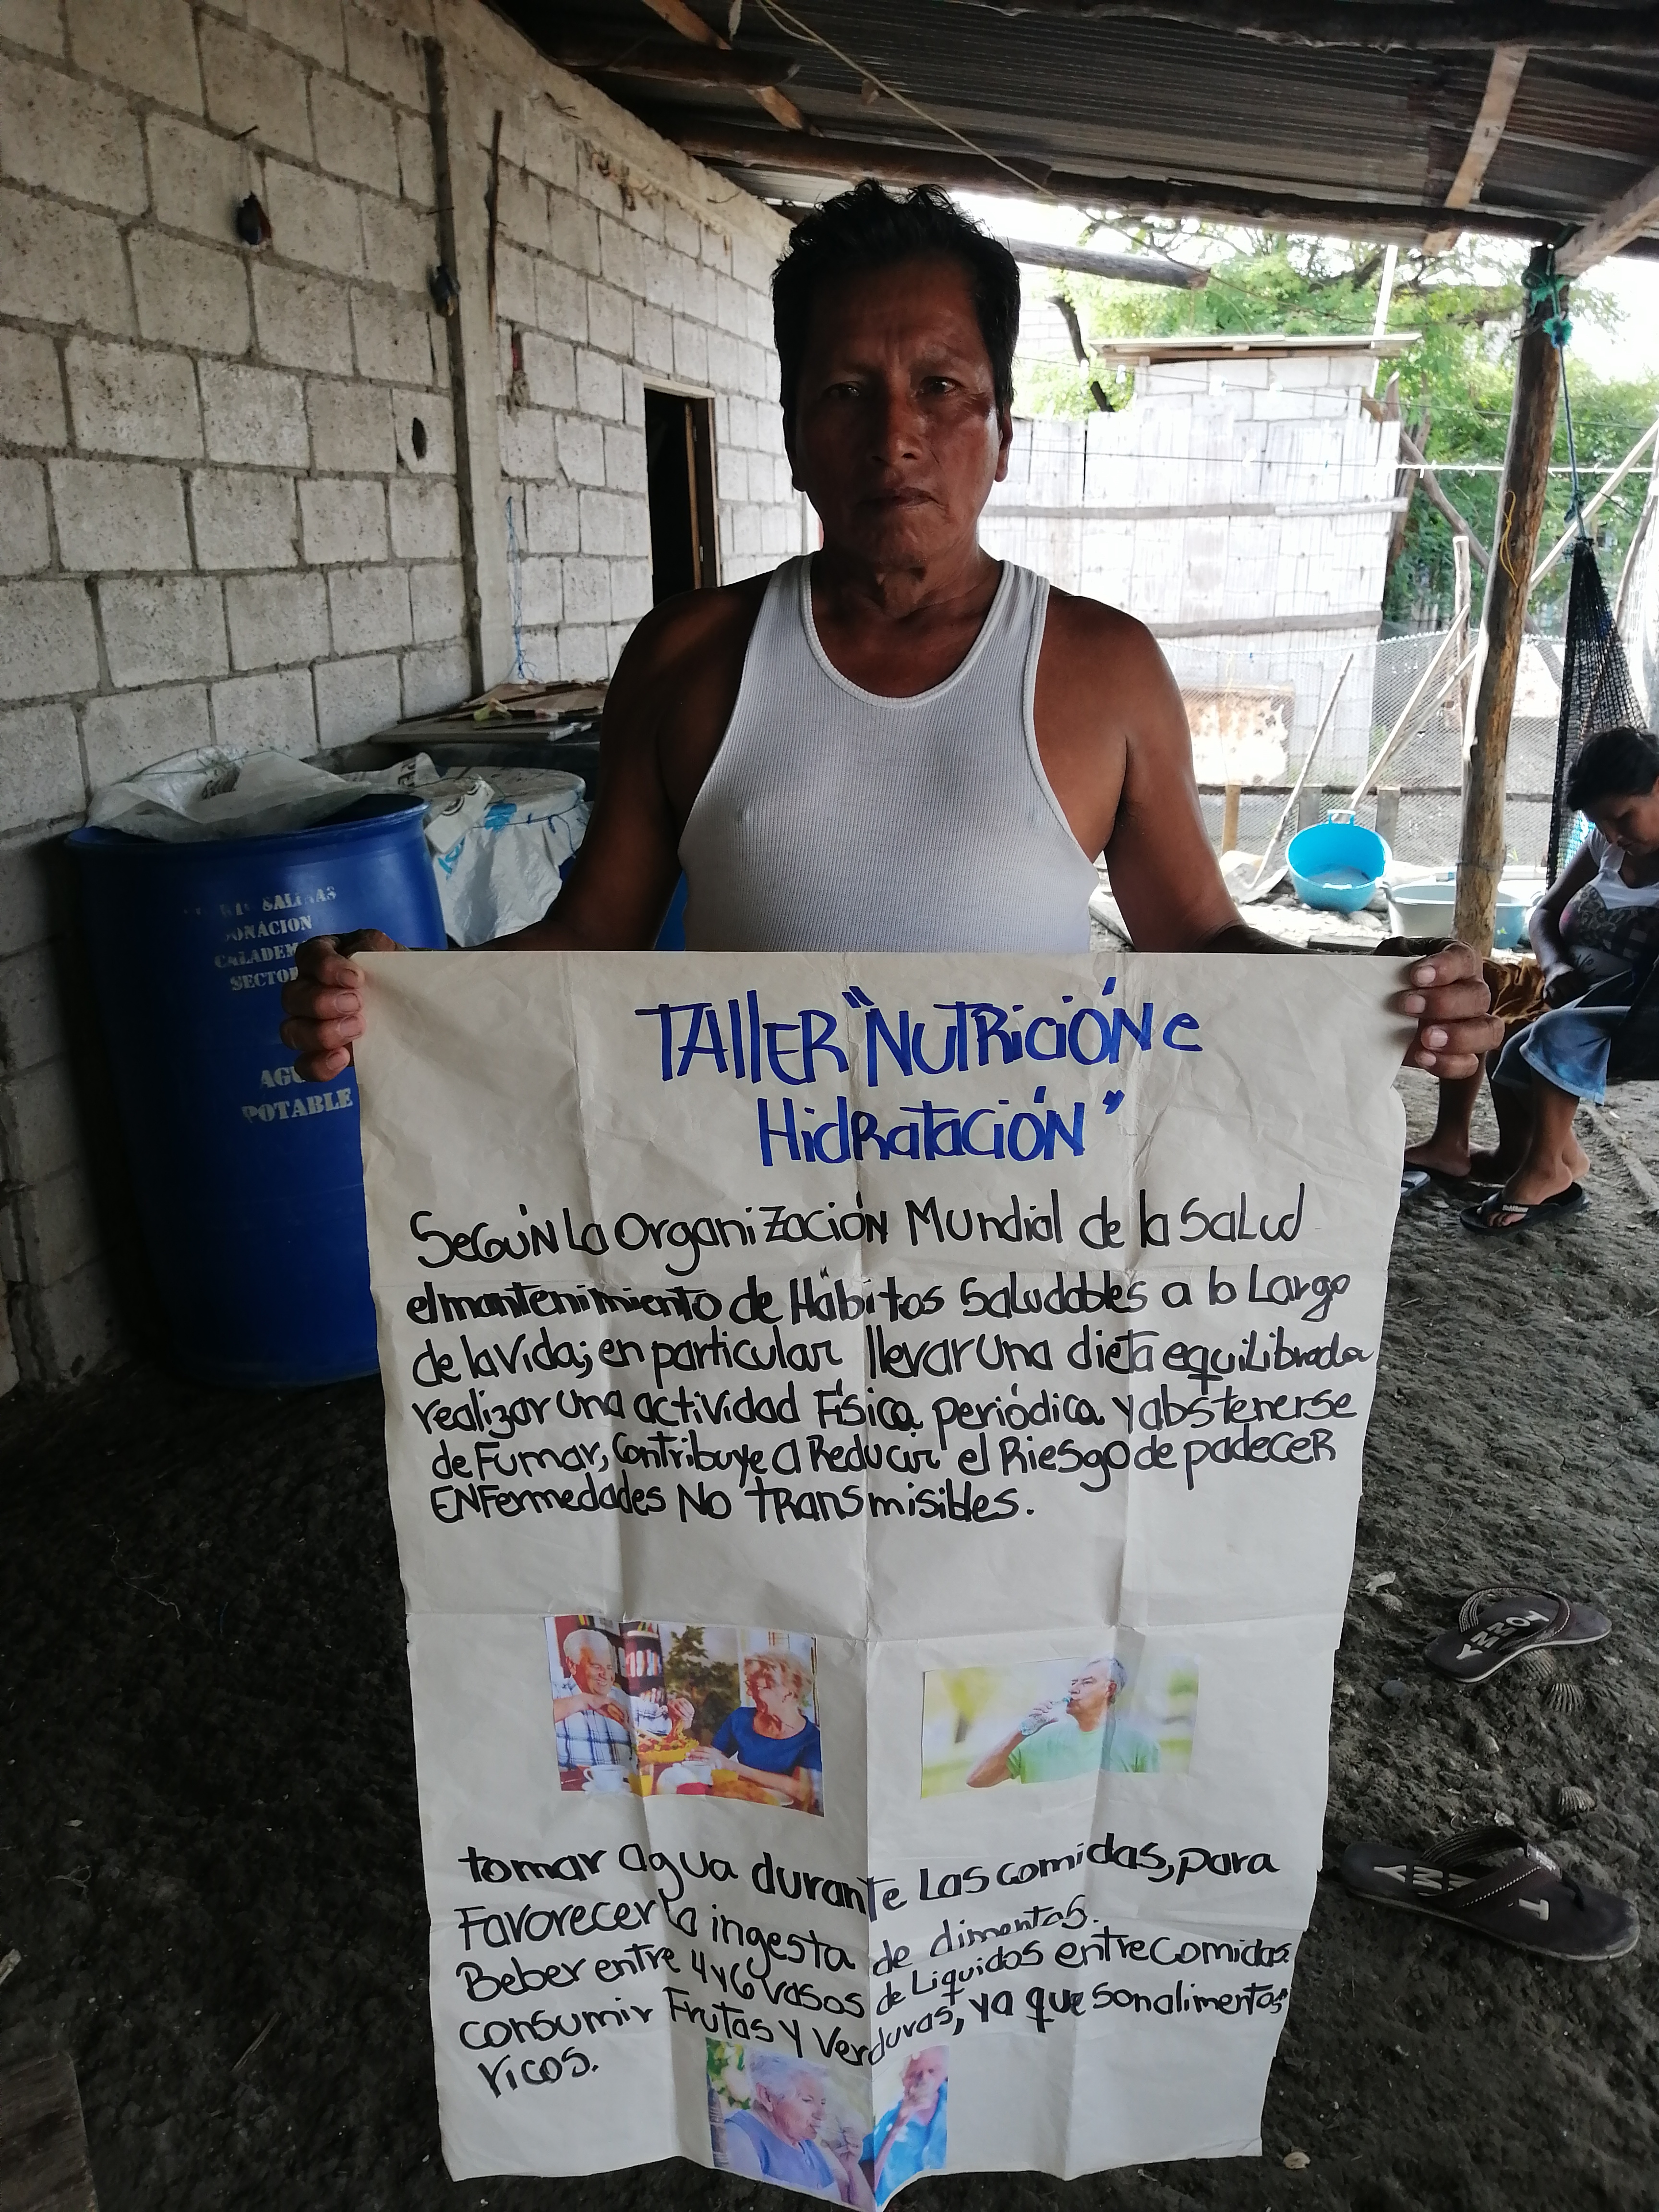 SALINAS
DONACION
CALADEM
SECTOR
AGU
POTABLE
TALLER "NUTRICIÓN e
HidRatacióN"
SegúN La OrganiZación Mundial de la SaLud
el mantenimiento de Hábitos Saludables a lo Largo
de la vida; en particular llevar una dieta equilibrada
realizar una actividad Física periódica y abstenerse
de Fumar, contribuye a Reducir el Riesgo de padeceR
ENFermedades No tRansmisibles.
tomar agua durante Las comidas, para
Favorecer la ingesta de alimentos.
Beber entre 4 y 6 vasos de Liquidos entre comidas.
consumir Frutas y Verduras, ya que son alimentos
ricos.
TOMMY
TOMMY